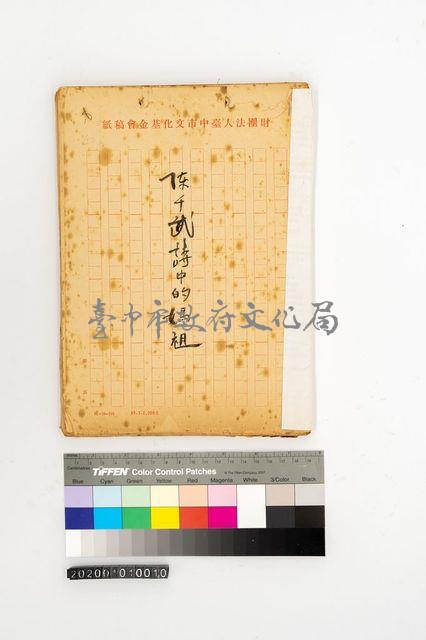 財團法人臺中市文化基金會稿紙
陳千武詩中的媽祖
臺中市政府文化局
Centimetres
TIFFEN Color Control Patches
© The Tiffen Company, 2007
Blue Cyan Green Yellow Red Magenta White 3/Color Black